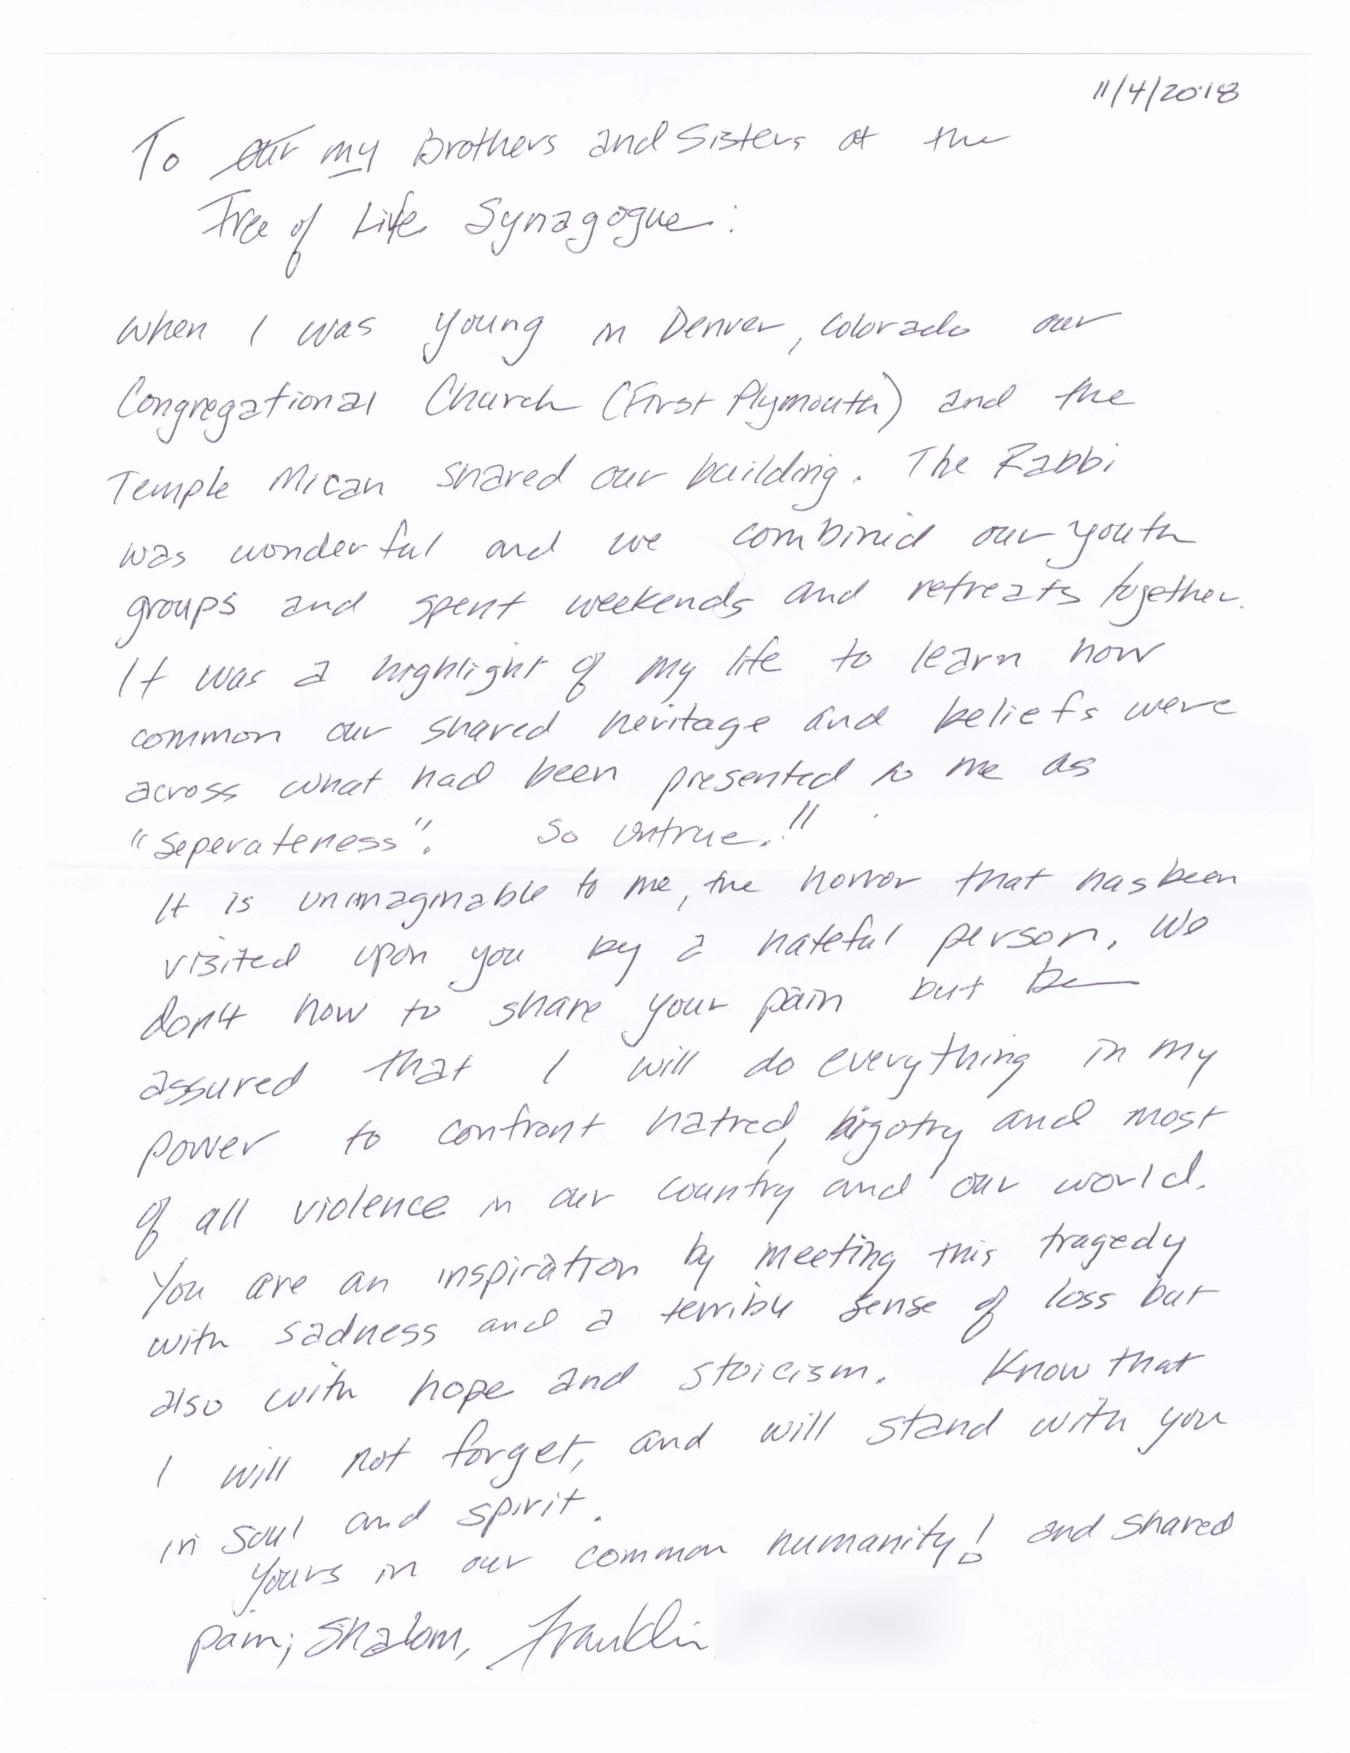 11/4/2018
To our my Brothers and Sisters at the
Tree of Life Synagogue:
When I was young in Denver, Colorado our
Congregational Church (First Plymouth) and the
Temple Mican shared our building. The Rabbi
was wonderful and we combined our youth
groups and spent weekends and retreats together.
It was a highlight of my life to learn how
common our shared heritage and beliefs were
across what had been presented to me as
"Seperateness". So untrue.!!
It is unimaginable to me, the horror that has been
visited upon you by a hateful person. We
don't how to share your pain but be
assured that I will do everything in my
power to confront hatred, bigotry and most
of all violence in our country and our world.
You are an inspiration by meeting this tragedy
with sadness and a terrible sense of loss but
also with hope and stoicism. Know that
I will not forget, and will stand with you
in soul and spirit.
Yours in our common humanity! and shared
pain; Shalom, Franklin